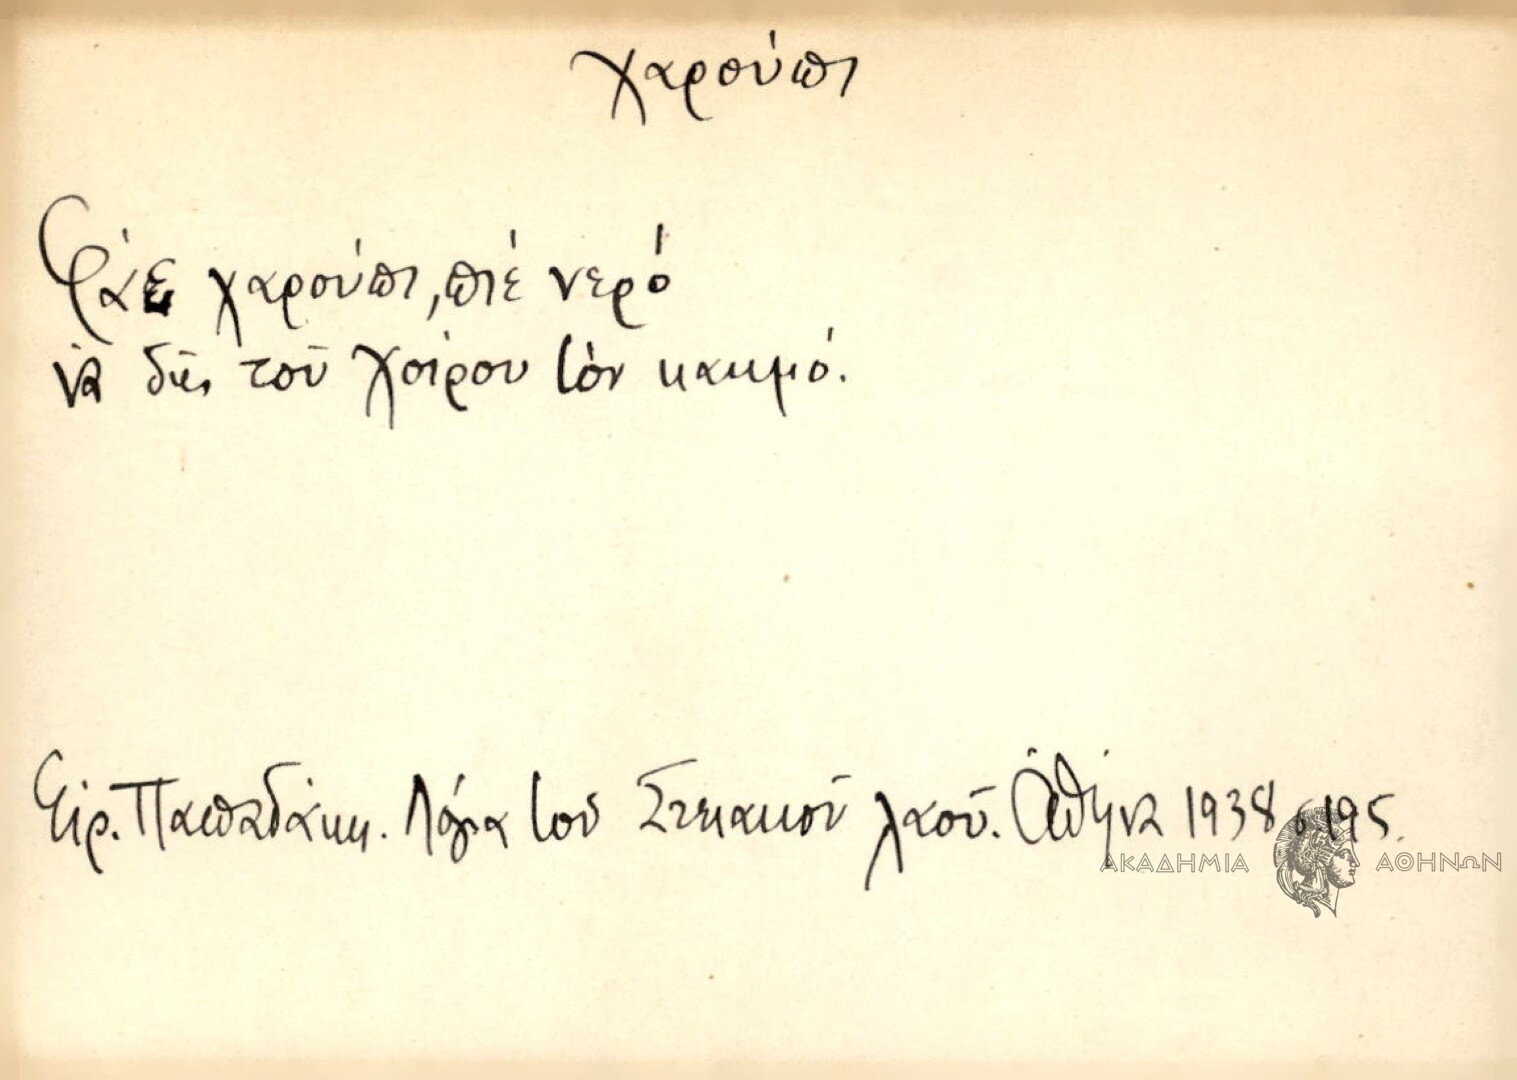 χαρούπι
Φάε χαρούπι, πιέ νερό
νὰ δῇς τοῦ χοίρου τὸν κακμό.
Εἰρ. Παπαδάκη. Λόγια τοῦ Στειακοῦ λαοῦ. Ἀθήνα 1938 σ. 195.
ΑΚΑΔΗΜΙΑ ΑΘΗΝΩΝ